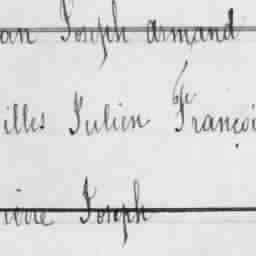 an Joseph Armand
illes Julien Françoi
ierre Joseph